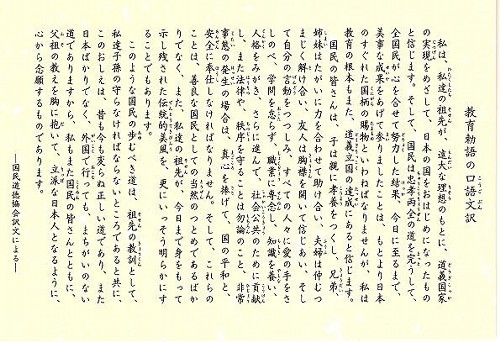 教育勅語の口語文訳
私は、私達の祖先が、遠大な理想のもとに、道義国家
の実現をめざして、日本の国をおはじめになったもの
と信じます。そして、国民は忠孝両全の道を完うして、
全国民が心を合せて努力した結果、今日に至るまで、
美事な成果をあげて参りましたことは、もとより日本
のすぐれた国柄の賜物といわねばなりませんが、私は
教育の根本もまた、道義立国の達成にあると信じます。
国民の皆さんは、子は親に孝養をつくし、兄弟、
姉妹はたがいに力を合わせて助け合い、夫婦は仲むつ
まじく解け合い、友人は胸襟を開いて信じあい、そし
て自分の言動をつつしみ、すべての人々に愛の手をさ
しのべ、学問を怠らず、職業に専念し、知識を養い、
人格をみがき、さらに進んで、社会公共のために貢献
し、また法律や、秩序を守ることは勿論のこと、非常
事態の発生の場合は、真心を捧げて、国の平和と、
安全に奉仕しなければなりません。そして、これらの
ことは、善良な国民としての当然のつとめであるばか
りでなく、また、私達の祖先が、今日まで身をもって
示し残された伝統的美風を、更にいっそう明らかにす
ることでもあります。
このような国民の歩むべき道は、祖先の教訓として、
私達子孫の守らなければならないところであると共に、
このおしえは、昔も今も変らぬ正しい道であり、また
日本ばかりでなく、外国で行っても、まちがいのない
道でありますから、私もまた国民の皆さんとともに、
父祖の教えを胸に抱いて、立派な日本人となるように、
心から念願するものであります。
―国民道徳協会訳文による―